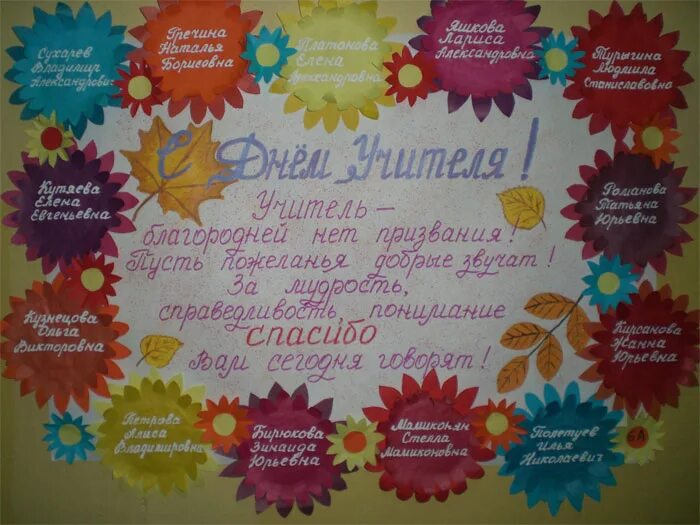 Сухарев
Владимир
Александрович
Гречина
Наталья
Борисовна
Платонова
Елена
Александровна
Яшкова
Лариса
Александровна
Турыгина
Людмила
Станиславовна
С Днём Учителя!
Кутяева
Елена
Евгеньевна
Романова
Татьяна
Юрьевна
Учитель –
благородней нет призвания!
Пусть пожеланья добрые звучат!
За мудрость,
справедливость, понимание
спасибо
Вам сегодня говорят!
Кузнецова
Ольга
Викторовна
Кирсанова
Жанна
Юрьевна
Петрова
Алиса
Владимировна
Бирюкова
Зинаида
Юрьевна
Мамиконян
Стелла
Мамиконовна
Полетуев
Илья
Николаевич
6А